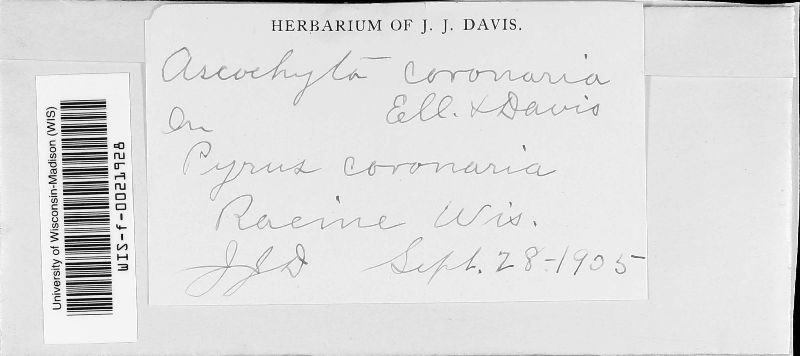 HERBARIUM OF J. J. DAVIS.
Ascochyta coronaria
Ell. & Davis
On
Pyrus coronaria
Racine Wis.
JJD Sept. 28-1905
University of Wisconsin-Madison (WIS)
WIS-f-0021928